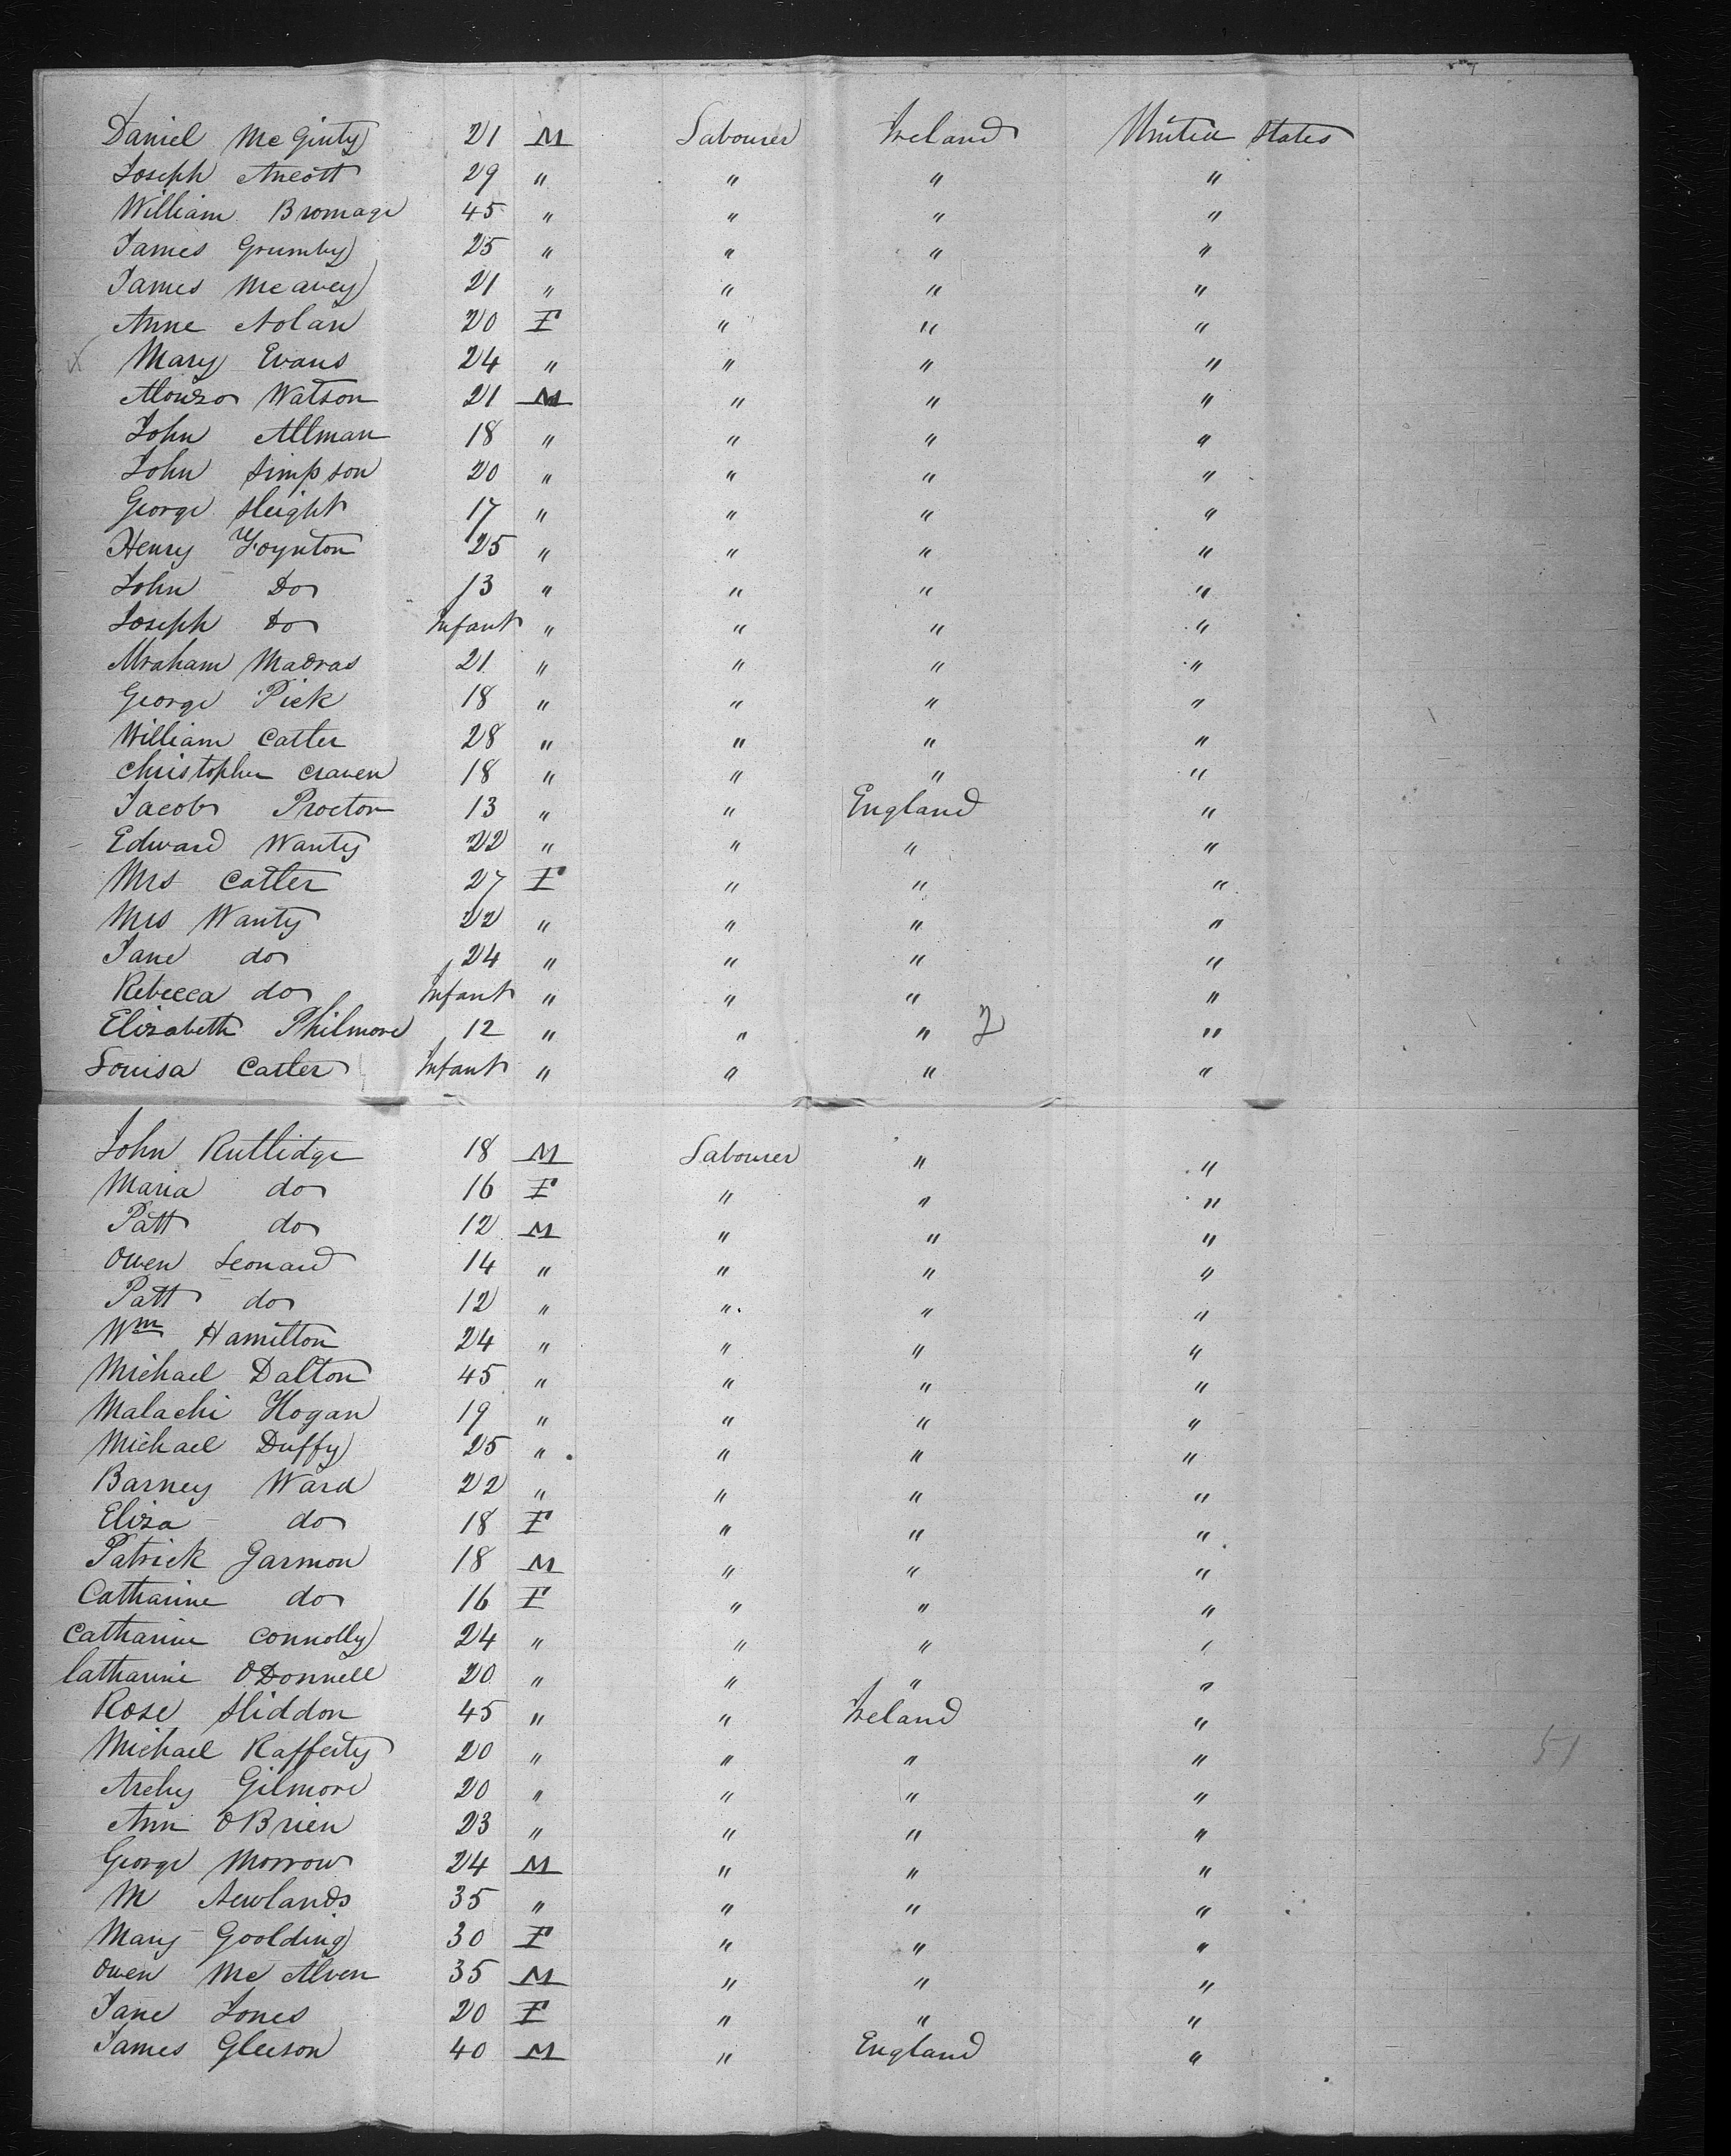 Daniel McGinty 21 M Labourer Ireland United States
Joseph Ancott 29 " " " "
William Bromage 45 " " " "
James Grumby 25 " " " "
James McAvey 21 " " " "
Anne Nolan 20 F " " "
Mary Evans 24 " " " "
Alonzo Watson 21 M " " "
John Allman 18 " " " "
John Simpson 20 " " " "
George Sleight 17 " " " "
Henry Foynton 25 " " " "
John Do 13 " " " "
Joseph Do Infant " " " "
Abraham Madras 21 " " " "
George Pick 18 " " " "
William Catler 28 " " " "
Christopher Craven 18 " " " "
Jacob Proctor 13 " " England "
Edward Wanty 22 " " " "
Mrs Catler 27 F " " "
Mrs Wanty 22 " " " "
Jane do 24 " " " "
Rebecca do Infant " " " "
Elizabeth Philmore 12 " " " "
Louisa Catler Infant " " " "
John Rutlidge 18 M Labourer " "
Maria do 16 F " " "
Patt do 12 M " " "
Owen Leonard 14 " " " "
Patt do 12 " " " "
Wm Hamilton 24 " " " "
Michael Dalton 45 " " " "
Malachi Hogan 19 " " " "
Michael Duffy 25 " " " "
Barney Ward 22 " " " "
Eliza do 18 F " " "
Patrick Garmon 18 M " " "
Catharine do 16 F " " "
Catharine Connolly 24 " " " "
Catharine ODonnell 20 " " " "
Rose Sliddon 45 " " Ireland "
Michael Rafferty 20 " " " "
Archy Gilmore 20 " " " "
Ann OBrien 23 " " " "
George Morrow 24 M " " "
M Newlands 35 " " " "
Mary Goolding 30 F " " "
Owen McAlven 35 M " " "
Jane Jones 20 F " " "
James Gleeson 40 M " England "
51